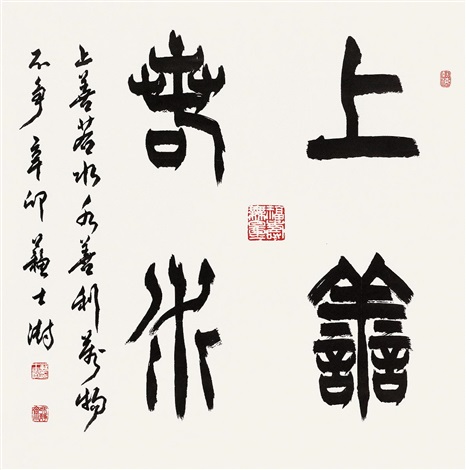 上譱
若水
上善若水水善利萬物
不争辛卯蘇士澍